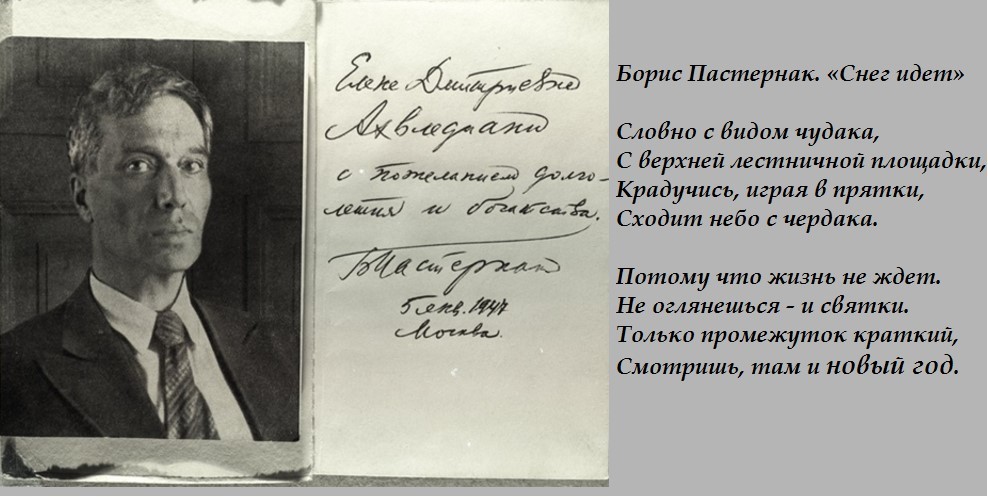 Елене Дмитриевне
Ахвледиани
с пожеланием долго-
летия и богатства.
БПастернак
5 янв. 1947
Москва.
Борис Пастернак. «Снег идет»
Словно с видом чудака,
С верхней лестничной площадки,
Крадучись, играя в прятки,
Сходит небо с чердака.
Потому что жизнь не ждет.
Не оглянешься - и святки.
Только промежуток краткий,
Смотришь, там и новый год.